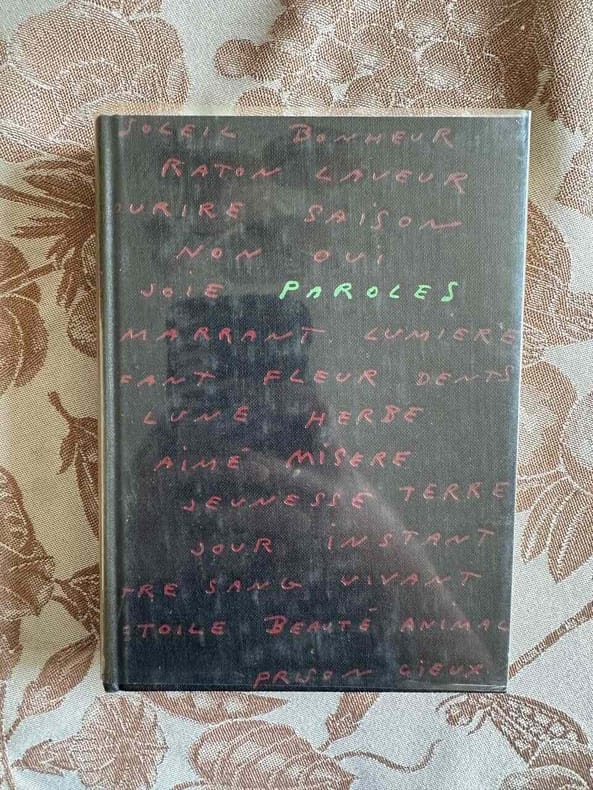 SOLEIL BONHEUR
RATON LAVEUR
OURIRE SAISON
NON OUI
JOIE PAROLES
MARRANT LUMIERE
EANT FLEUR DENTS
LUNE HERBE
AIMÉ MISERE
JEUNESSE TERRE
JOUR INSTANT
TRE SANG VIVANT
ETOILE BEAUTÉ ANIMAL
PRISON CIEUX